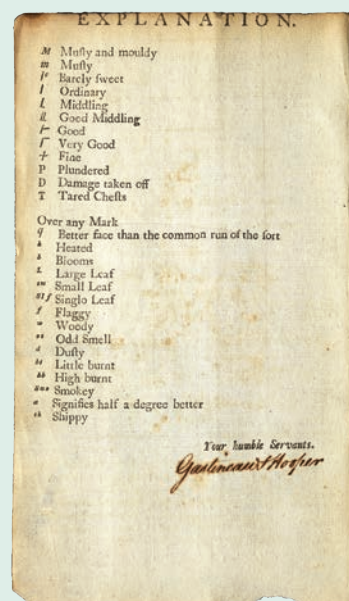 EXPLANATION.
M Muſty and mouldy
m Muſty
Barely ſweet
Ordinary
Middling
Good Middling
Good
Very Good
Fine
P Plundered
D Damage taken off
T Tared Cheſts
Over any Mark
Better face than the common run of the ſort
Heated
Blooms
L Large Leaf
Small Leaf
Singlo Leaf
f Flaggy
w Woody
Odd Smell
d Duſty
Little burnt
High burnt
Smokey
Signifies half a degree better
Shippy
Your humble Servants.
Gaſtineau & Hooper